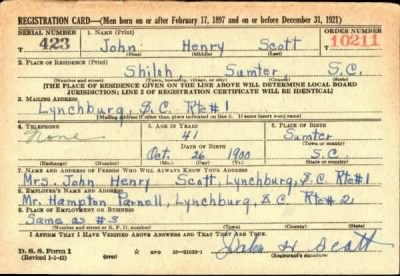 REGISTRATION CARD—(Men born on or after February 17, 1897 and on or before December 31, 1921)
SERIAL NUMBER 1. NAME (Print) ORDER NUMBER
T 423 John Henry Scott T 10211
(First) (Middle) (Last)
2. PLACE OF RESIDENCE (Print)
Shiloh, Sumter S.C.
(Number and street) (Town, township, village, or city) (County) (State)
[THE PLACE OF RESIDENCE GIVEN ON THE LINE ABOVE WILL DETERMINE LOCAL BOARD
JURISDICTION; LINE 2 OF REGISTRATION CERTIFICATE WILL BE IDENTICAL]
3. MAILING ADDRESS
Lynchburg, S.C. Rte #1
[Mailing address if other than place indicated on line 2. If same insert word same]
4. TELEPHONE 5. AGE IN YEARS 6. PLACE OF BIRTH
None 41 Sumter
DATE OF BIRTH (Town or county)
Oct. 26 1900 S.C.
(Exchange) (Number) (Mo.) (Day) (Yr.) (State or country)
7. NAME AND ADDRESS OF PERSON WHO WILL ALWAYS KNOW YOUR ADDRESS
Mrs. John Henry Scott, Lynchburg, S.C. Rte #1
8. EMPLOYER'S NAME AND ADDRESS
Mr. Hampton Parnell, Lynchburg, S.C. Rte #2
9. PLACE OF EMPLOYMENT OR BUSINESS
Same as #3
(Number and street or R. F. D. number) (Town) (County) (State)
I AFFIRM THAT I HAVE VERIFIED ABOVE ANSWERS AND THAT THEY ARE TRUE.
D. S. S. Form 1
(Revised 1-1-42) (over) GPO 16—21630-1 John H. Scott